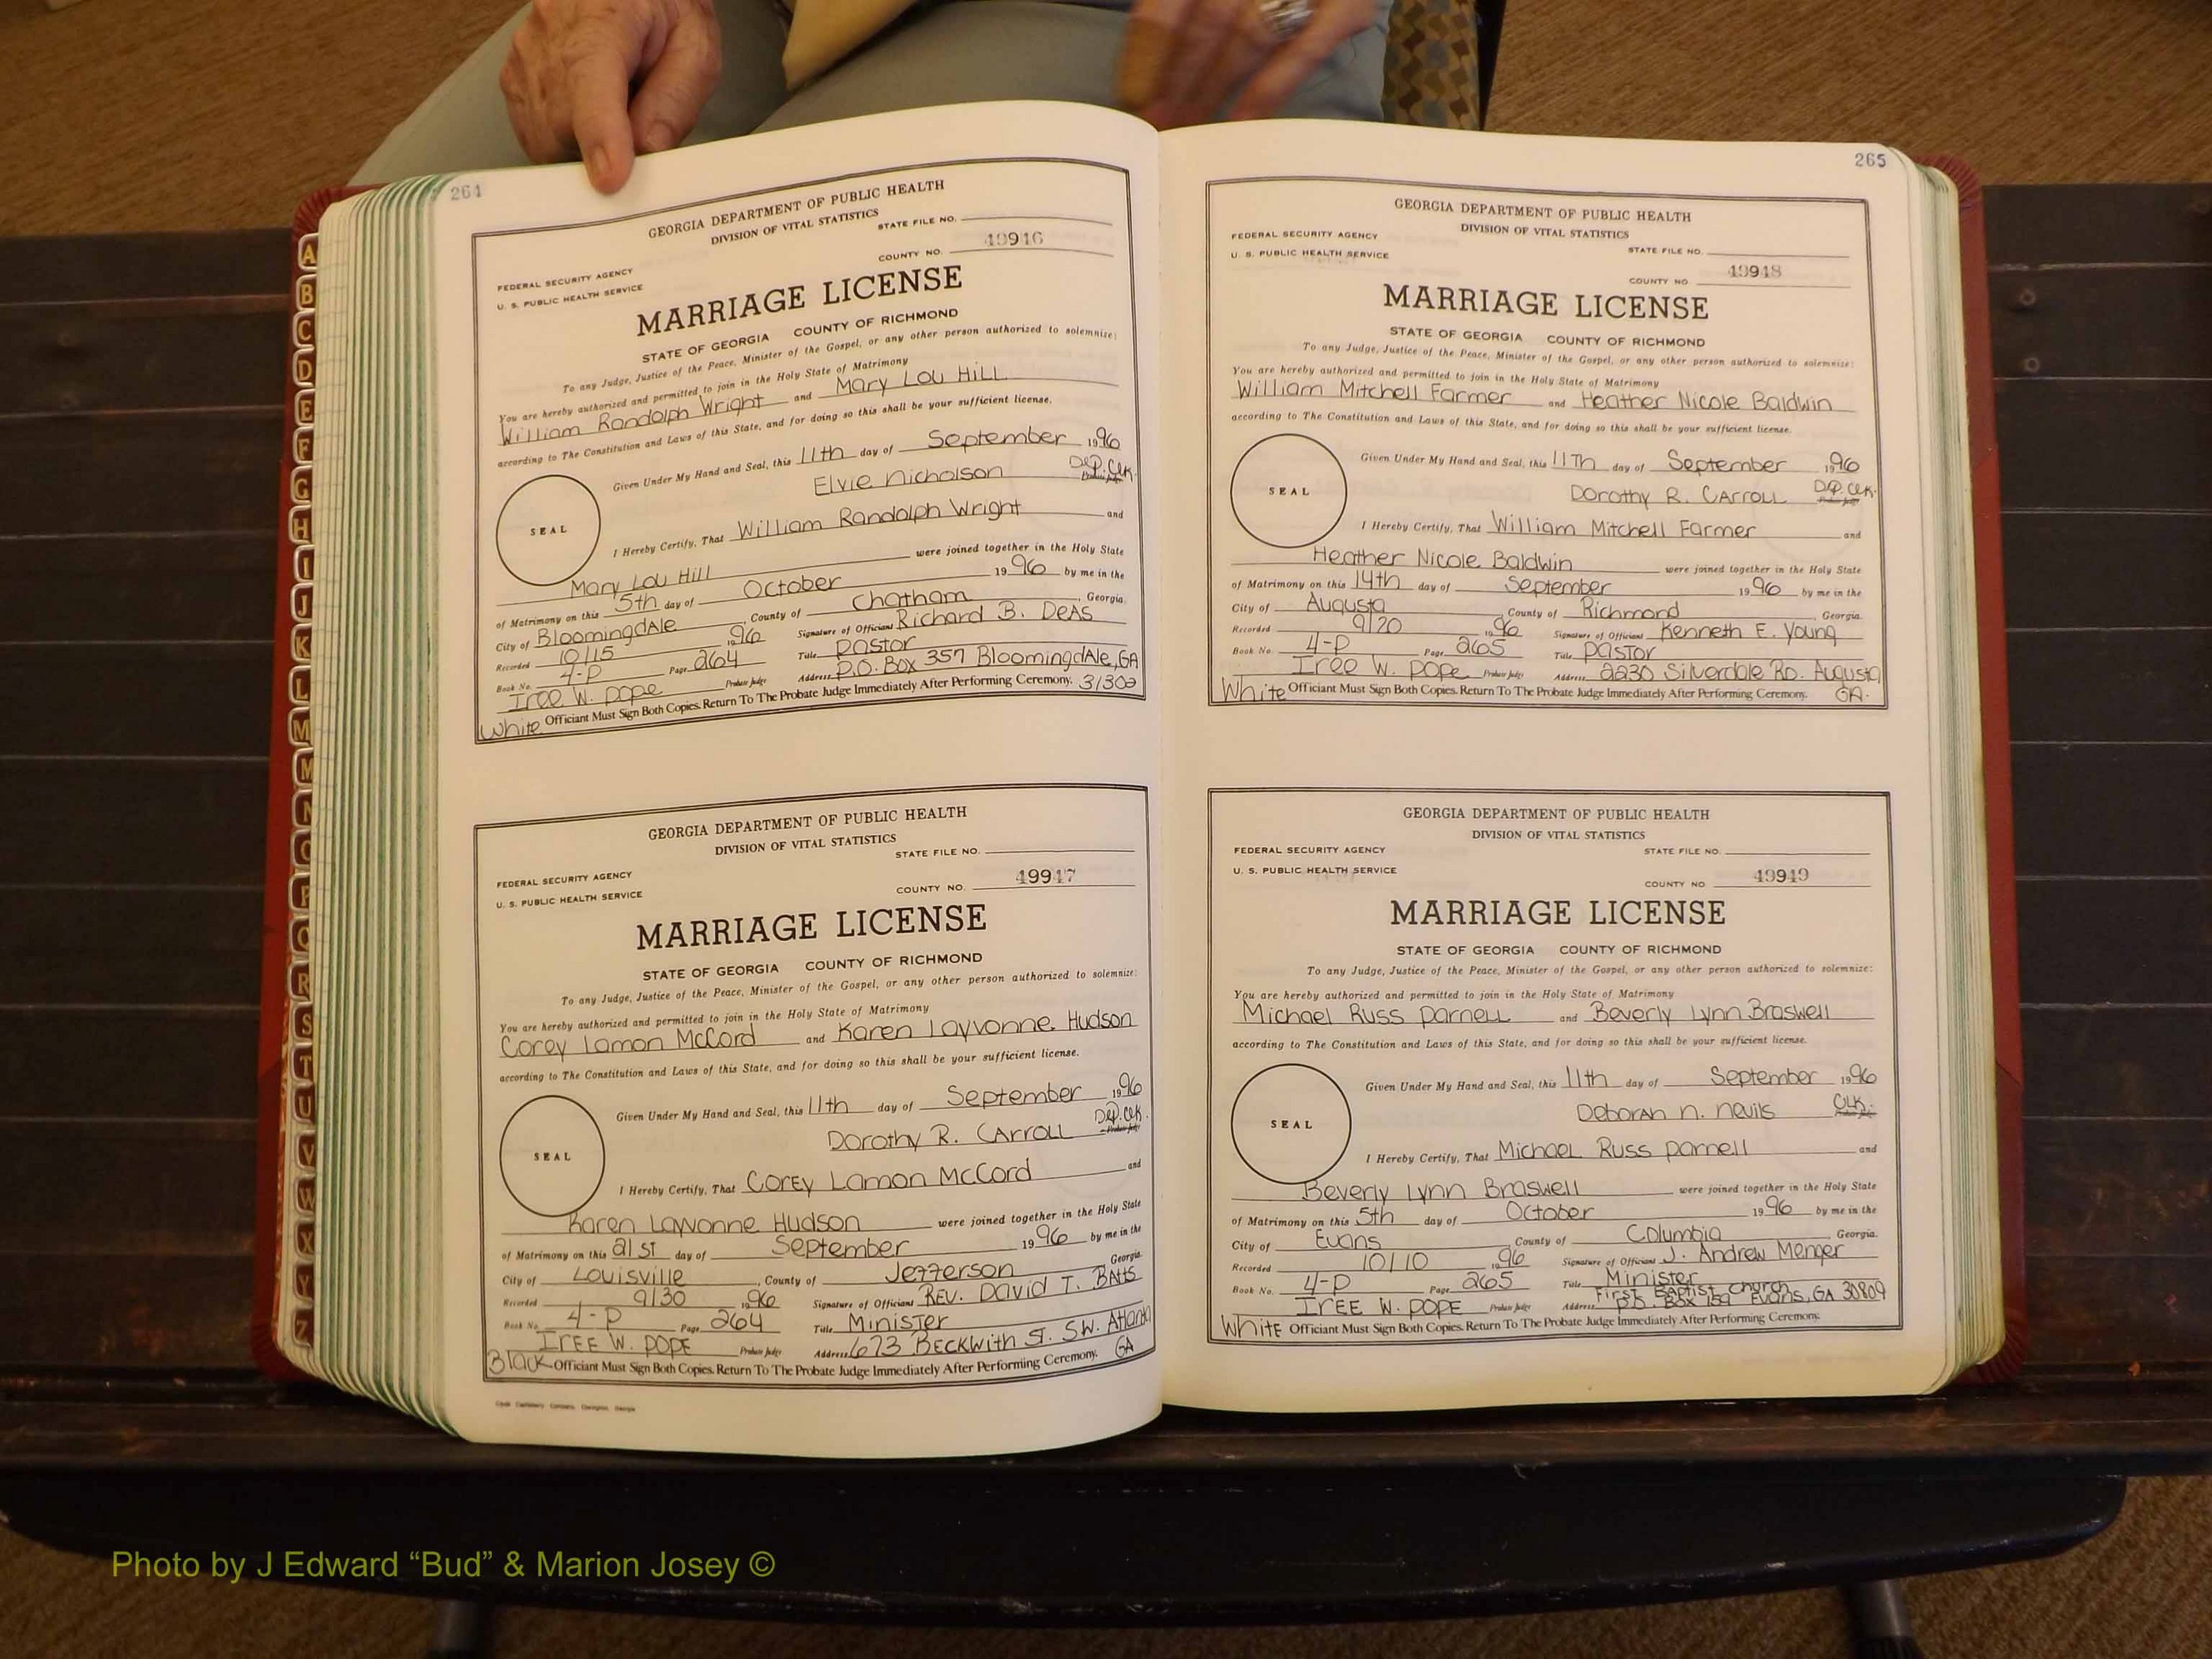 264
GEORGIA DEPARTMENT OF PUBLIC HEALTH
DIVISION OF VITAL STATISTICS
STATE FILE NO.
FEDERAL SECURITY AGENCY
U. S. PUBLIC HEALTH SERVICE
COUNTY NO. 49946
MARRIAGE LICENSE
STATE OF GEORGIA COUNTY OF RICHMOND
To any Judge, Justice of the Peace, Minister of the Gospel, or any other person authorized to solemnize:
You are hereby authorized and permitted to join in the Holy State of Matrimony
William Randolph Wright and Mary Lou Hill
according to The Constitution and Laws of this State, and for doing so this shall be your sufficient license.
Given Under My Hand and Seal, this 11th day of September 1996
Elvie Nicholson Dep. Clk. Probate Judge
SEAL
I Hereby Certify, That William Randolph Wright and
Mary Lou Hill were joined together in the Holy State
of Matrimony on this 5th day of October 1996 by me in the
City of BloomingdAle, County of Chatham, Georgia.
Recorded 10/15 1996 Signature of Officiant Richard B. DeAs
Book No. 4-P Page 264 Title Pastor
Iree W. Pope Probate Judge Address P.O. Box 357 BloomingdAle, GA
White Officiant Must Sign Both Copies. Return To The Probate Judge Immediately After Performing Ceremony. 31302
GEORGIA DEPARTMENT OF PUBLIC HEALTH
DIVISION OF VITAL STATISTICS
STATE FILE NO.
FEDERAL SECURITY AGENCY
U. S. PUBLIC HEALTH SERVICE
COUNTY NO. 49947
MARRIAGE LICENSE
STATE OF GEORGIA COUNTY OF RICHMOND
To any Judge, Justice of the Peace, Minister of the Gospel, or any other person authorized to solemnize:
You are hereby authorized and permitted to join in the Holy State of Matrimony
Corey Lamon McCord and Karen Layvonne Hudson
according to The Constitution and Laws of this State, and for doing so this shall be your sufficient license.
Given Under My Hand and Seal, this 11th day of September 1996
Dorothy R. CARROLL Dep. Clk. Probate Judge
SEAL
I Hereby Certify, That Corey Lamon McCord and
Karen Layvonne Hudson were joined together in the Holy State
of Matrimony on this 21st day of September 1996 by me in the
City of Louisville, County of Jefferson Georgia.
Recorded 9/30 1996 Signature of Officiant REV. David T. BAtts
Book No. 4-P Page 264 Title Minister
IREE W. POPE Probate Judge Address 673 Beckwith St. SW. Atlanta
Black Officiant Must Sign Both Copies. Return To The Probate Judge Immediately After Performing Ceremony. GA
265
GEORGIA DEPARTMENT OF PUBLIC HEALTH
DIVISION OF VITAL STATISTICS
FEDERAL SECURITY AGENCY
U. S. PUBLIC HEALTH SERVICE
STATE FILE NO.
COUNTY NO 49948
MARRIAGE LICENSE
STATE OF GEORGIA COUNTY OF RICHMOND
To any Judge, Justice of the Peace, Minister of the Gospel, or any other person authorized to solemnize:
You are hereby authorized and permitted to join in the Holy State of Matrimony
William Mitchell Farmer and Heather Nicole Baldwin
according to The Constitution and Laws of this State, and for doing so this shall be your sufficient license.
Given Under My Hand and Seal, this 11th day of September 1996
Dorothy R. CARROLL Dep. Clk. Probate Judge
SEAL
I Hereby Certify, That William Mitchell Farmer and
Heather Nicole Baldwin were joined together in the Holy State
of Matrimony on this 14th day of September 1996 by me in the
City of Augusta, County of Richmond, Georgia.
Recorded 9/20 1996 Signature of Officiant Kenneth E. Young
Book No. 4-P Page 265 Title Pastor
Iree W. Pope Probate Judge Address 2230 Silverdale Rd. Augusta
White Officiant Must Sign Both Copies. Return To The Probate Judge Immediately After Performing Ceremony. GA.
GEORGIA DEPARTMENT OF PUBLIC HEALTH
DIVISION OF VITAL STATISTICS
FEDERAL SECURITY AGENCY
U. S. PUBLIC HEALTH SERVICE
STATE FILE NO.
COUNTY NO 49949
MARRIAGE LICENSE
STATE OF GEORGIA COUNTY OF RICHMOND
To any Judge, Justice of the Peace, Minister of the Gospel, or any other person authorized to solemnize:
You are hereby authorized and permitted to join in the Holy State of Matrimony
Michael Russ Parnell and Beverly Lynn Braswell
according to The Constitution and Laws of this State, and for doing so this shall be your sufficient license.
Given Under My Hand and Seal, this 11th day of September 1996
Deborah N. Nevils Clk. Probate Judge
SEAL
I Hereby Certify, That Michael Russ Parnell and
Beverly Lynn Braswell were joined together in the Holy State
of Matrimony on this 5th day of October 1996 by me in the
City of Evans, County of Columbia, Georgia.
Recorded 10/10 1996 Signature of Officiant J. Andrew Menger
Book No. 4-P Page 265 Title Minister
First Baptist Church
IREE W. POPE Probate Judge Address P.O. Box 159 Evans, GA 30809
White Officiant Must Sign Both Copies. Return To The Probate Judge Immediately After Performing Ceremony.
A
B
C
D
E
F
G
H
I
J
K
L
M
M
N
O
P
Q
R
S
T
U
V
W
X
Y
Z
Photo by J Edward “Bud” & Marion Josey ©